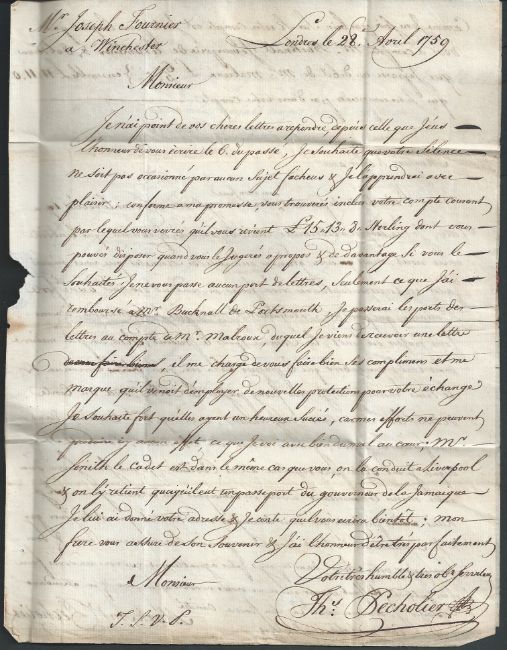 Mr. Joseph Fournier
a Winchester
Londres le 28 Avril 1759
Monsieur
Je n'ai point de vos cheres lettre a repondre, depuis celle que J'eus
l'honneur de vous écrire le 6. du passé, Je souhaite que votre Silence
ne soit pas occasionné par aucun Sujet facheux & Je l'apprendrai avec
plaisir; conforme a ma promesse vous trouverés inclus votre compte courant
par lequel vous verrés qu'il vous revient £ 15.13. 3 Sterling dont vous
pouvés disposer quand vous le Jugeres apropos & de davantage si vous le
souhaites, Je ne vous passe aucun port de lettres, seulement ce que J'ai
remboursé a Mr. Bucknall de Portsmouth, Je passerai les ports des
lettres au compte de Mr. Malroux duquel Je viens de recevoir une lettre
il me charge de vous faire bien ses complimens et me
marque qu'il venoit d'emploÿer de nouvelles protection pour votre échange
Je souhaite fort qu'elles ayent un heureux Succés, car mes efforts ne peuvent
produire aucun effet, ce que Je vois avec bien du mal au cœur; Mr.
le Cadet est dans le même cas que vous, on l'a conduit a Liverpool
& on l'y retient quoiqu'il eut un passeport du gouverneur de la Jamaique
Je lui ai donné votre adresse & Je conte qu'il vous ecrira bientôt; mon
frere vous assure de son Souvenir & J'ai l'honneur d'etre tres parfaitement
Monsieur
Votre tres humble & tres obt. serviteur
Ths. Pecholier
T. S. V. P.